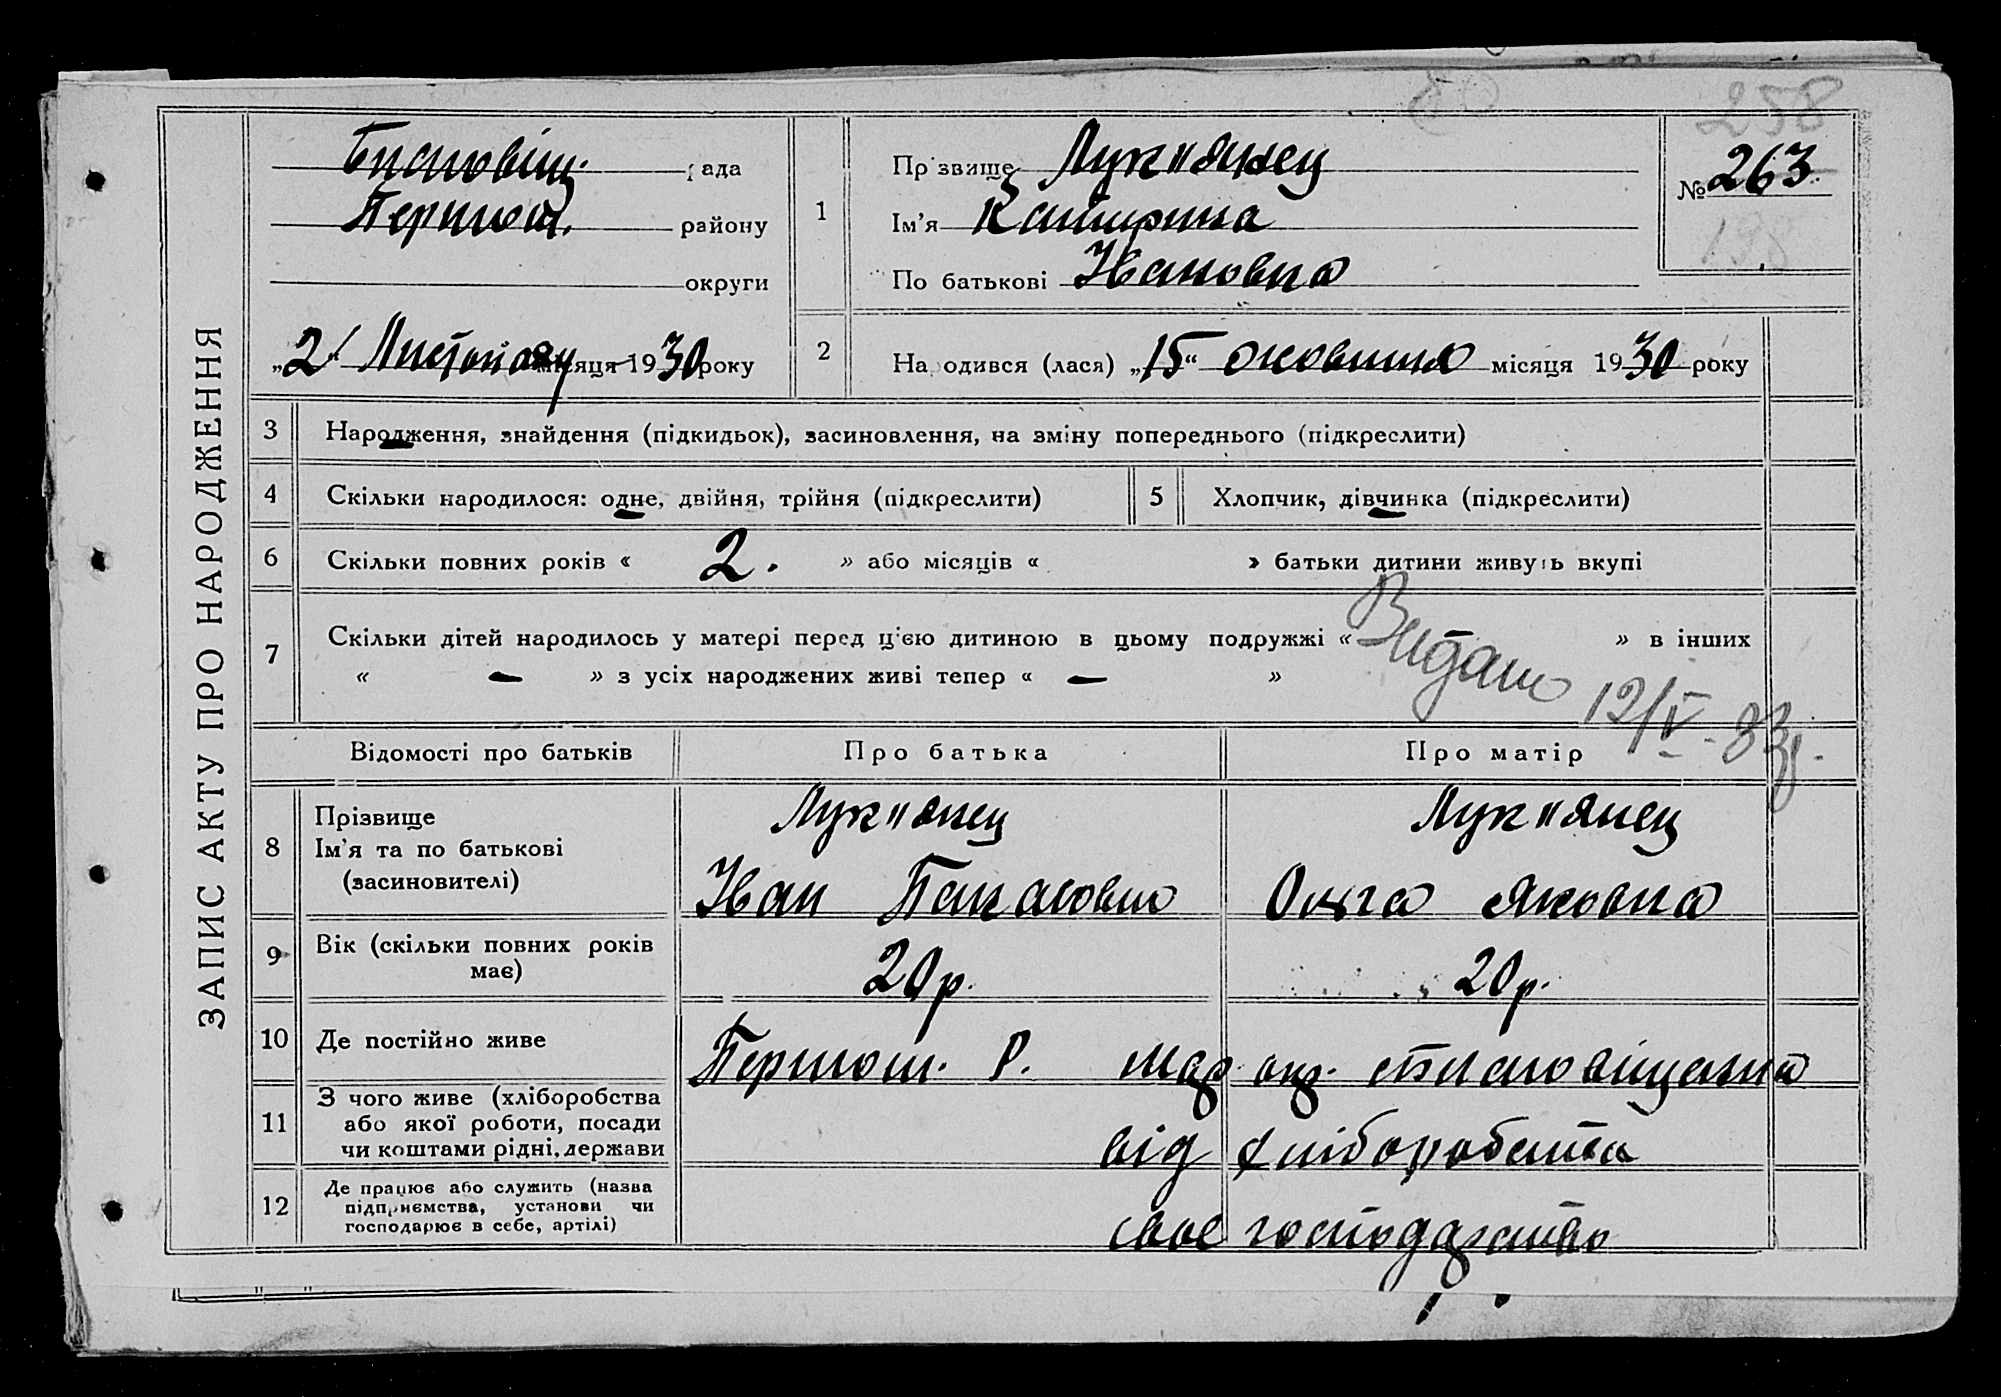 ЗАПИС АКТУ ПРО НАРОДЖЕННЯ
258
рада
Першом. району
округи
„2“ Листопаду місяця 1930 року
1
Прізвище Лук"янец
Ім'я Катирина
По батькові Ивановна
№ 263
198
2
Народився (лася) „15“ жовтня місяця 1930 року
3 Народження, знайдення (підкидьок), засиновлення, на зміну попереднього (підкреслити)
4 Скільки народилося: одне, двійня, трійня (підкреслити)
5 Хлопчик, дівчинка (підкреслити)
6 Скільки повних років « 2. » або місяців « » батьки дитини живуть вкупі
7 Скільки дітей народилось у матері перед цією дитиною в цьому подружжі « » в інших
« — » з усіх народжених живі тепер « — »
Видано 12/V-33р.
Відомості про батьків
Про батька
Про матір
8 Прізвище
Ім'я та по батькові
(засиновителі)
Лук"янец
Иван Панасович
Лук"янец
Ольга Яковна
9 Вік (скільки повних років
має)
20р.
20р.
10 Де постійно живе
Першом. Р.
11 З чого живе (хліборобства
або якої роботи, посади
чи коштами рідні, держави
від хліборобства
12 Де працює або служить (назва
підприємства, установи чи
господарює в себе, артілі)
своє господарство